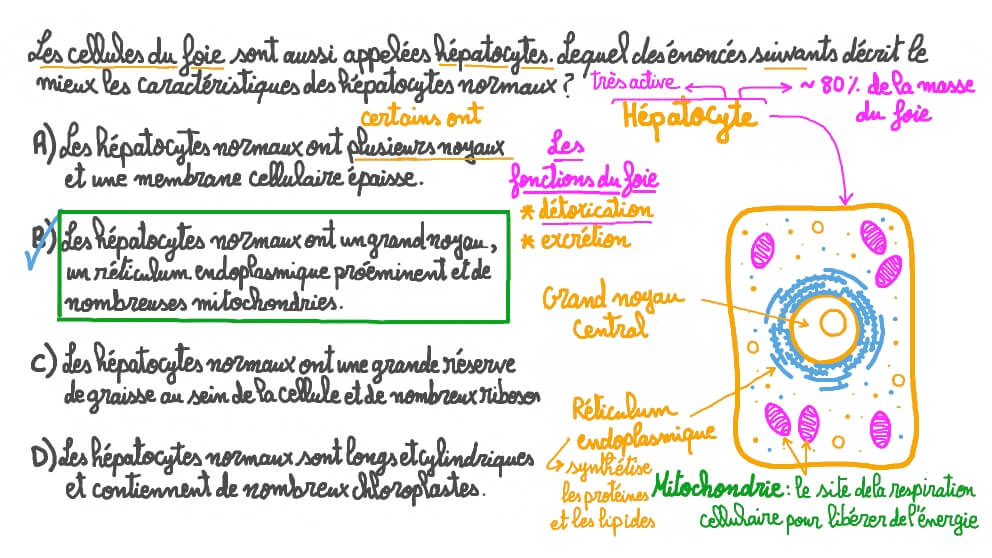 Les cellules du foie sont aussi appelées hépatocytes. Lequel des énoncés suivants décrit le
mieux les caractéristiques des hépatocytes normaux ?
très active
~ 80% de la masse
du foie
Hépatocyte
certains ont
A) Les hépatocytes normaux ont plusieurs noyaux
et une membrane cellulaire épaisse.
Les
fonctions du foie
* détoxication
* excrétion
B) Les hépatocytes normaux ont un grand noyau,
un réticulum endoplasmique proéminent et de
nombreuses mitochondries.
Grand noyau
central
C) Les hépatocytes normaux ont une grande réserve
de graisse au sein de la cellule et de nombreux ribosos
Réticulum
endoplasmique
synthétise
les protéines
et les lipides
D) Les hépatocytes normaux sont longs et cylindriques
et contiennent de nombreux chloroplastes.
Mitochondrie : le site de la respiration
cellulaire pour libérer de l'énergie